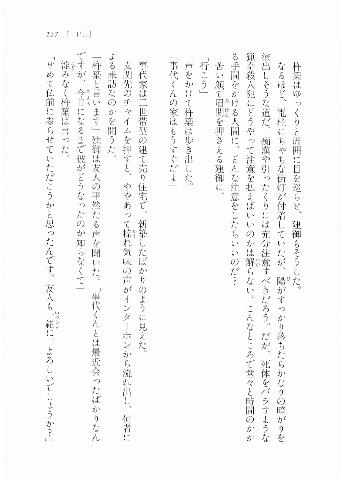 157 「一日目」
杵葉はゆっくりと周囲に目を巡らせ、建御もそうした。
なるほど、電柱にちゃちな街灯が付着していたが、陽がすっかり落ちたらかなりの暗がりを
演出しそうな道だ。痴漢や引ったくりには充分注意すべきだろう。だが、死体をバラすような
猟奇殺人犯にどうやって注意を払えばいいのかは解らない。こんなところで堂々と時間のかか
る手間をかける人間に、どんな注意をしたらいいのだ？
苦い顔で眉間を押さえる建御に、
「行こう」
声をかけて杵葉は歩き出した。
「事代くんの家はもうすぐだよ」
事代家は二世帯型の建て売り住宅で、新築したばかりのように見えた。
玄関先のチャイムを押すと、ややあって掠れ気味の声がインターホンから流れ出し、何者に
よる来訪なのかを問うた。
「杵葉と言います」建御は友人の平然たる声を聞いた。「事代くんとは最近会ったばかりなん
ですが、今日になるまで彼がどうなったのか知らなくて」
淀みなく杵葉は言った。
「せめて仏前に参らせていただこうかと思ったんです。友人も一緒に、よろしいでしょうか？」